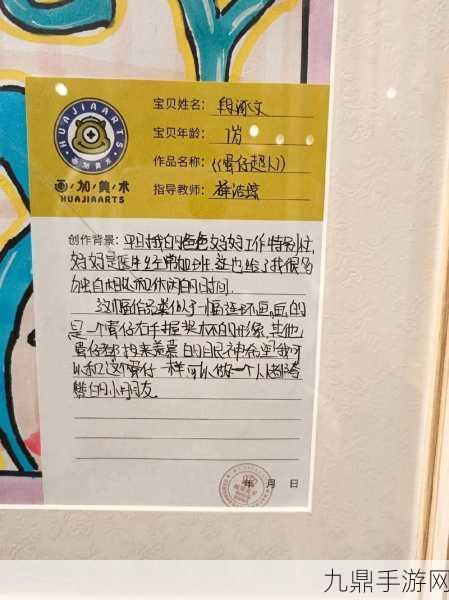 HUAJIAARTS
画·加美术
HUAJIAARTS
宝贝姓名：段
宝贝年龄：7岁
作品名称：《蛋仔超人》
指导教师：薛洁
创作背景：平日我的爸爸妈妈工作特别忙
妈妈是医生经常加班 这也给了我很多
独自相处和休闲的时间.
这幅作品类似于一幅连环画,画的
是一个蛋仔右手握奖杯的形象,其他
蛋仔都投来羡慕的目艮神希望我可
以和这个蛋仔一样 可以做一个人人都夸
赞的小朋友
年 月 日
九鼎手游网